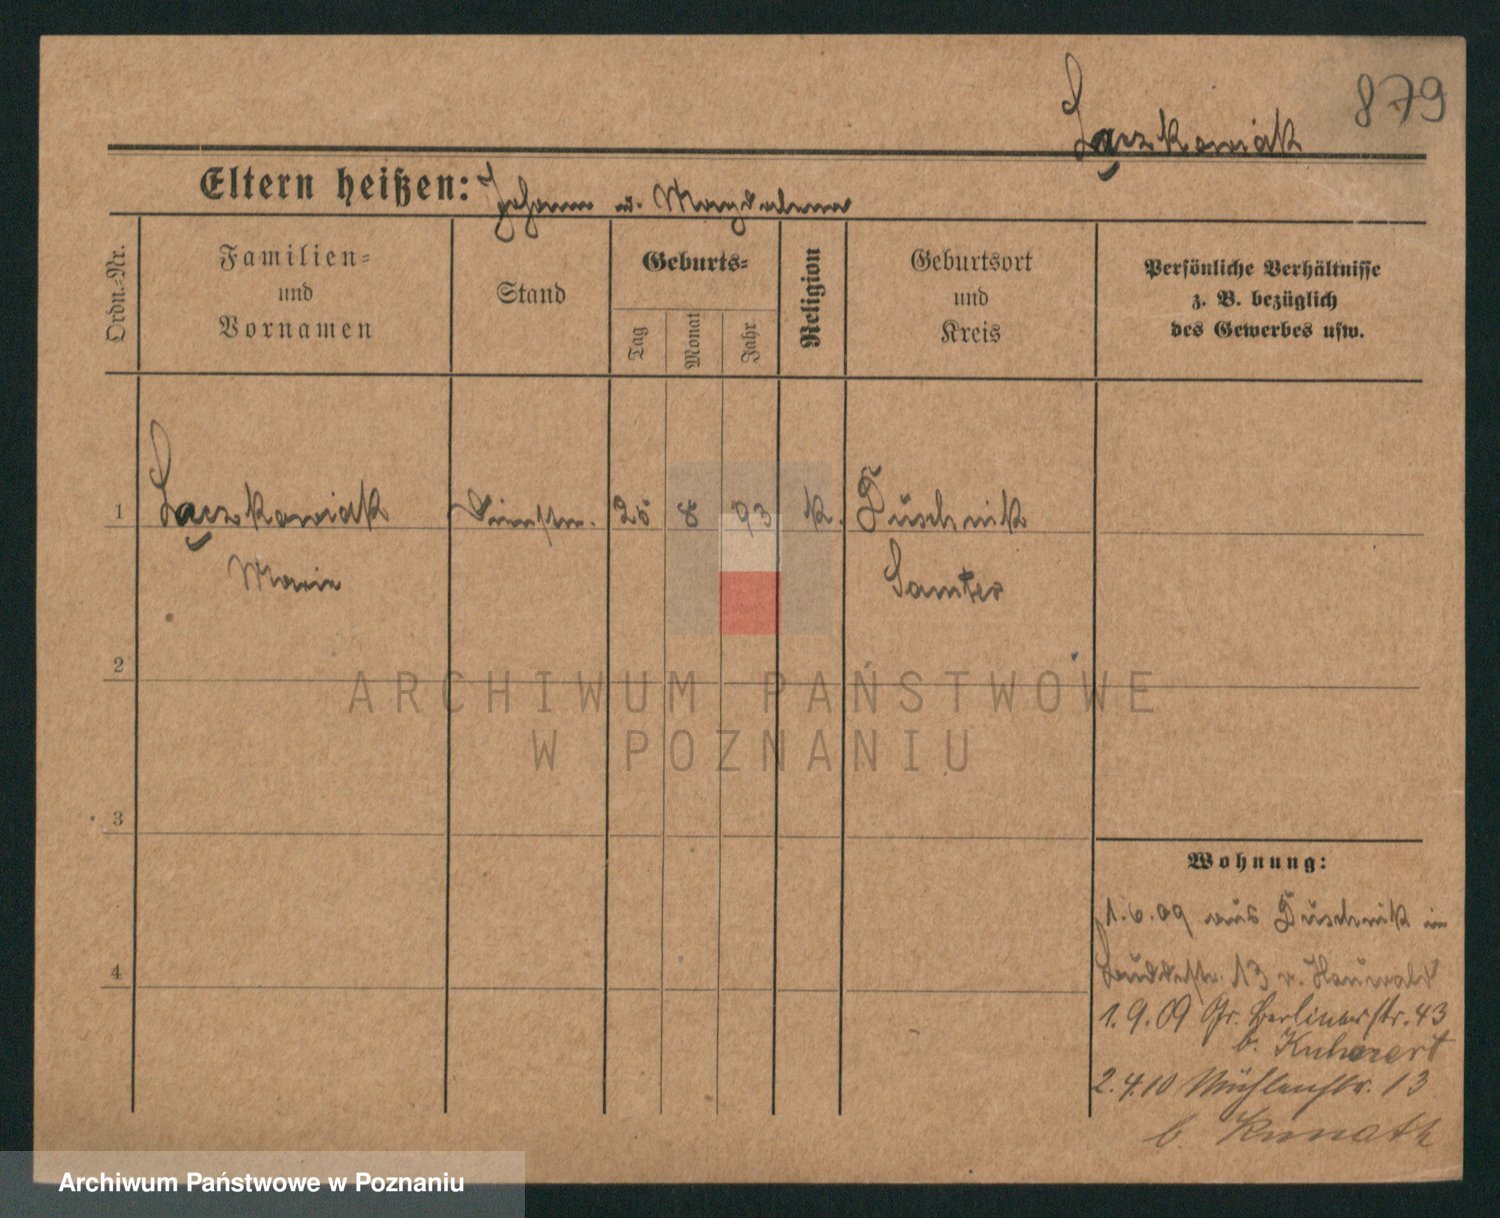 879
Lączkowiak
Eltern heißen: Johann u. Magdalena
Ordn.-Nr.
Familien-
und
Vornamen
Stand
Geburts-
Tag
Monat
Jahr
Religion
Geburtsort
und
Kreis
Persönliche Verhältnisse
z. B. bezüglich
des Gewerbes usw.
1 Lączkowiak Dienstm. 25 8 93 k. Duschnik
Marie Samter
2
ARCHIWUM PAŃSTWOWE
W POZNANIU
3
Wohnung:
1.6.09 aus Duschnik in
13 v.
4
1.9.09 Gr. Berlinerstr. 43
b.
2.4.10 Mühlenstr. 13
b. Kunath
Archiwum Państwowe w Poznaniu